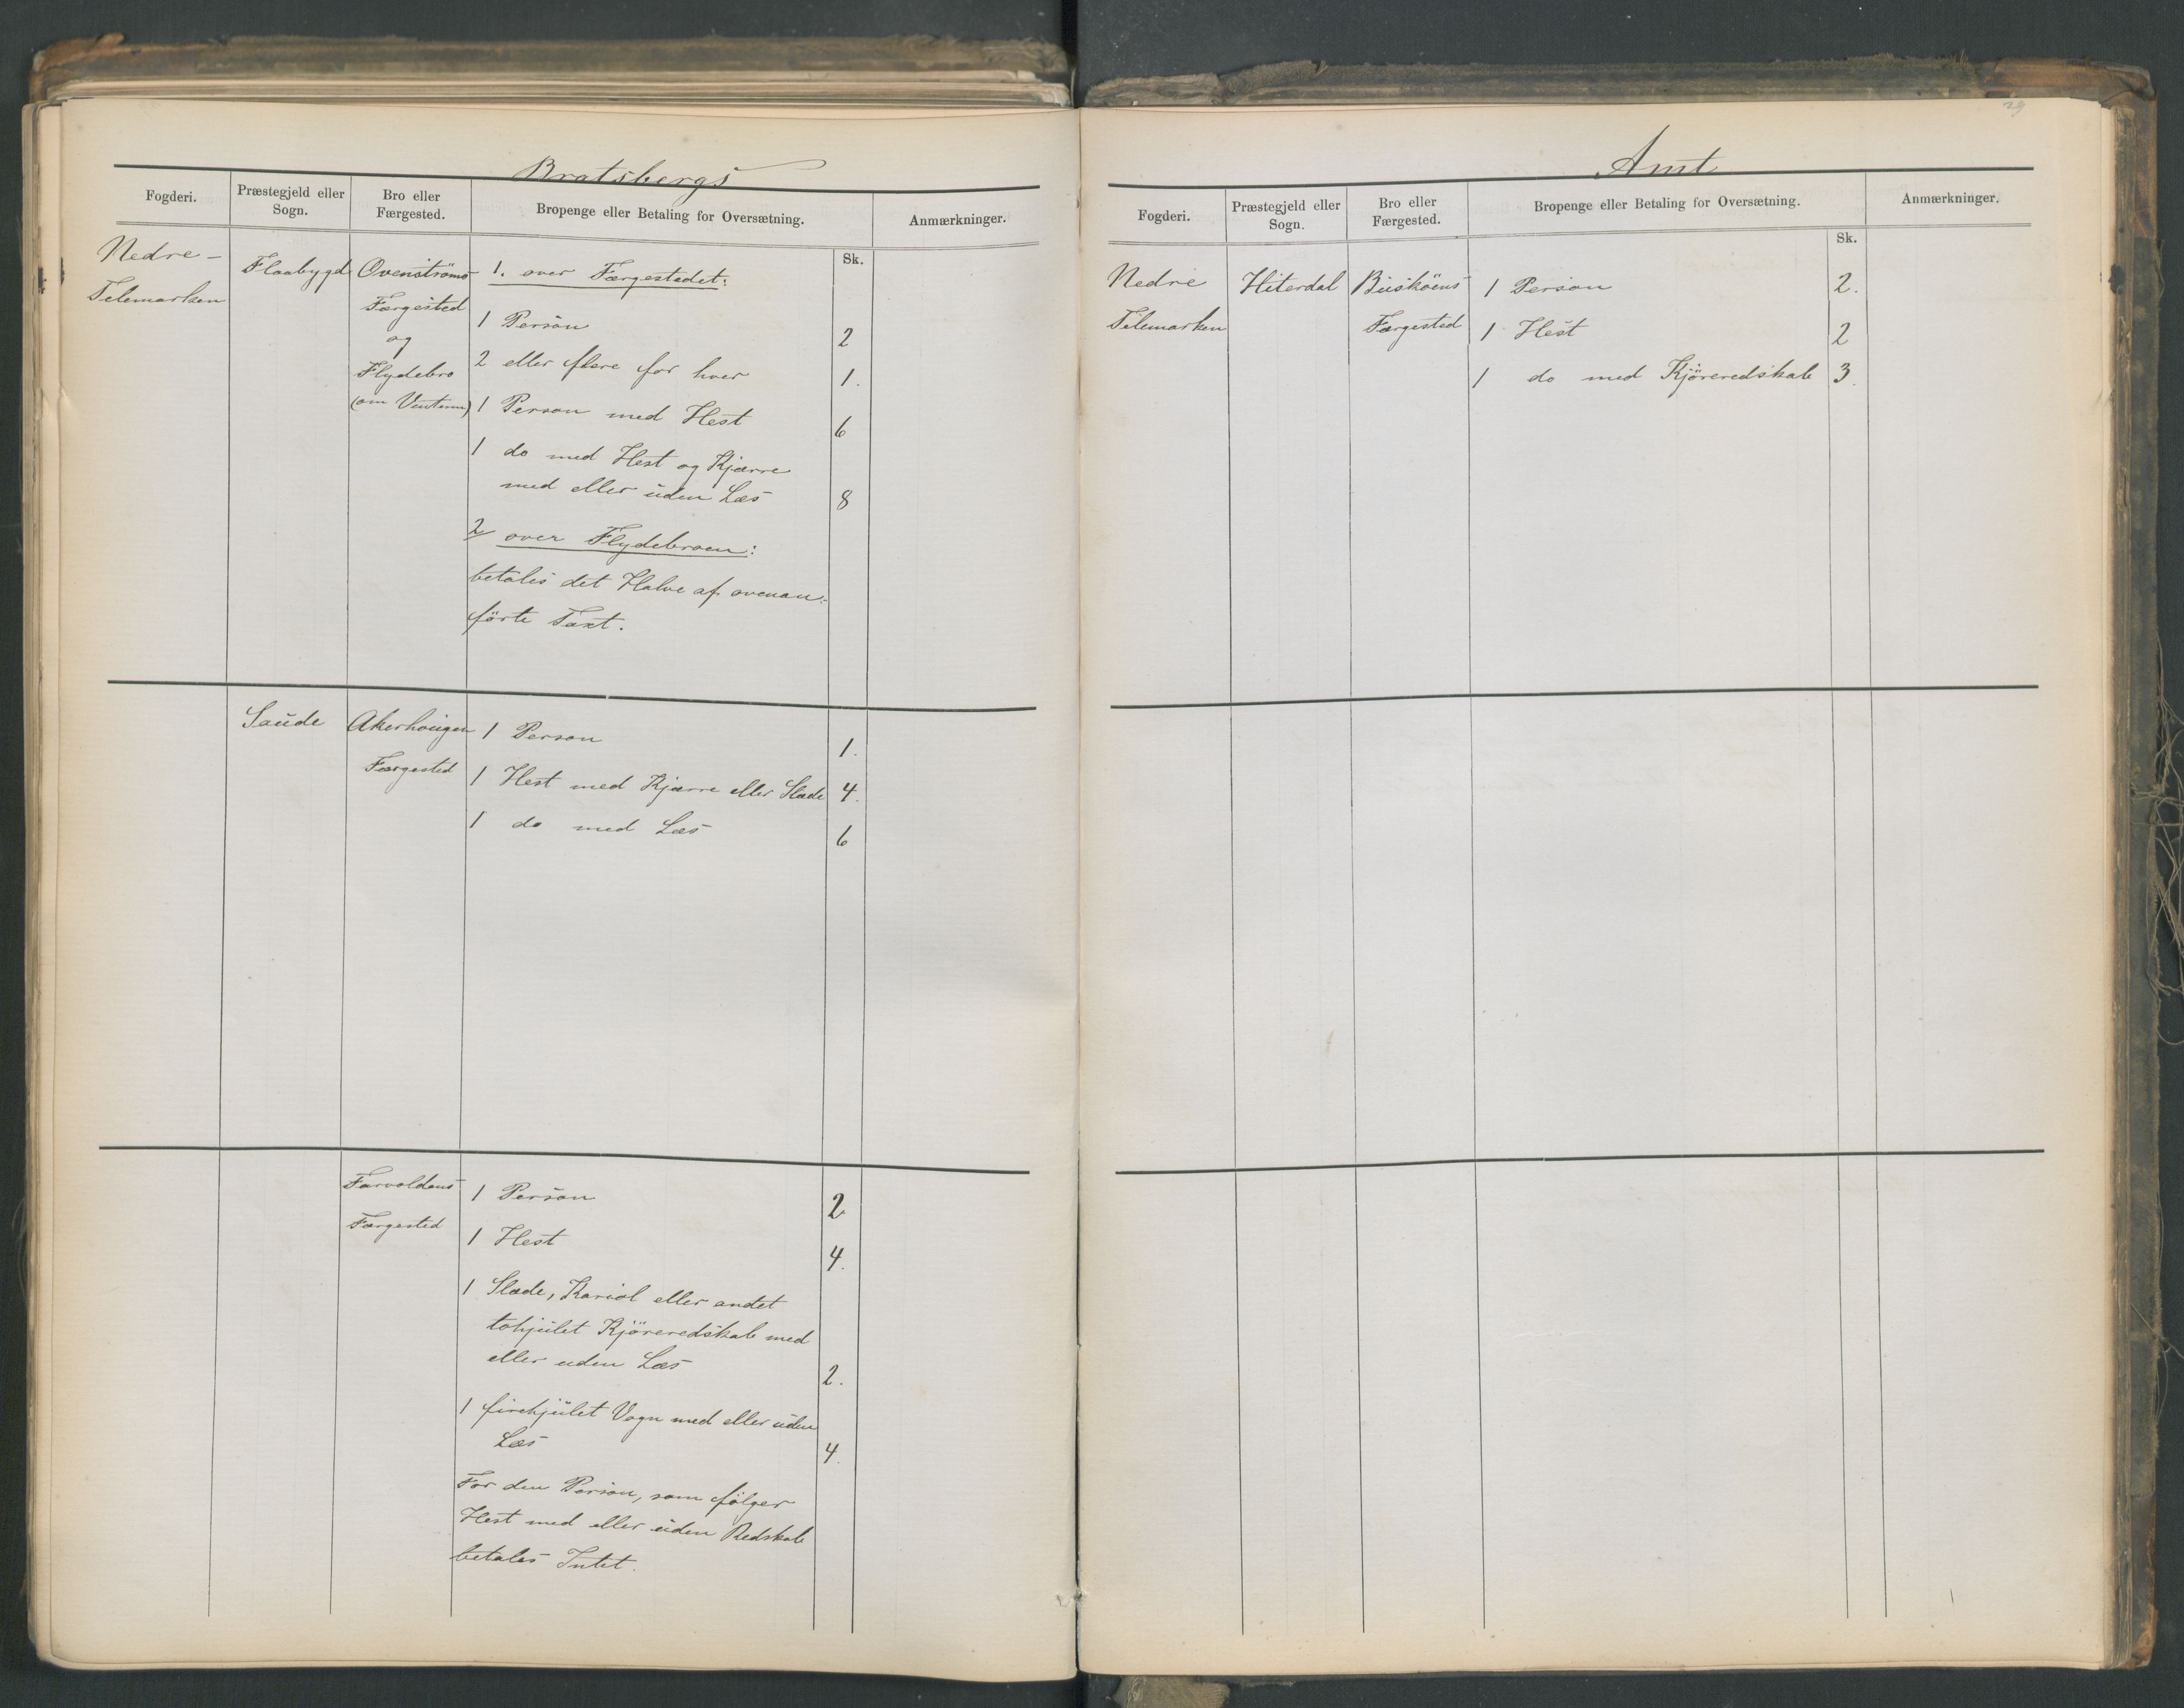 Bratsbergs
Fogderi.
Præstegjeld eller
Sogn.
Bro eller
Færgested.
Bropenge eller Betaling for Oversætning.
Anmærkninger.
Sk.
Nedre-
Telemarken
Flaabygd
Ovenströms
Færgested
og
Flydebro
1. over Færgestedet:
1 Person 2
2 eller flere for hver 1.
1 Person med Hest 6
1 do med Hest og Kjærre
med eller uden Læs 8
2 over Flydebroen:
betales det Halve af ovenan-
førte Taxt.
Saude
Akerhougen
Færgested
1 Person 1.
1 Hest med Kjærre eller Slæde 4.
1 do med Læs 6
Farvoldens
Færgested
1 Person 2
1 Hest 4.
1 Slæde, Kariol eller andet
tohjulet Kjöreredskab med
eller uden Læs 2.
1 firehjulet Vogn med eller uden
Læs 4.
For den Person, som fölger
Hest med eller uden Redskab
betales Intet.
29
Amt
Fogderi.
Præstegjeld eller
Sogn.
Bro eller
Færgested.
Bropenge eller Betaling for Oversætning.
Anmærkninger.
Sk.
Nedre
Telemarken
Hiterdal
Færgested
1 Person 2.
1 Hest 2
1 do med Kjöreredskab 3.